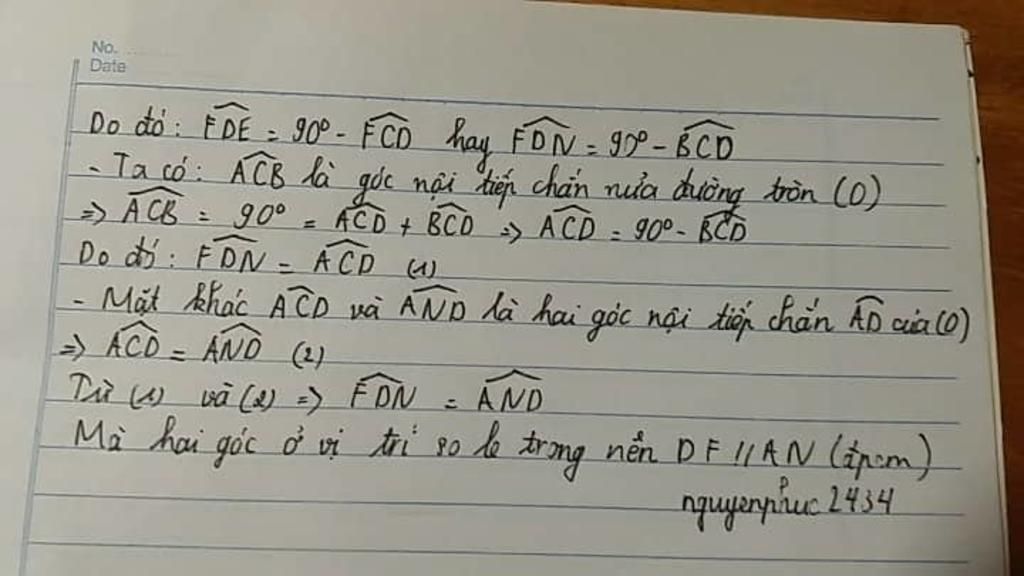 No.
Date
Do đó: FDE = 90° - FCD hay FDN = 90° - BCD
- Ta có: ACB là góc nội tiếp chắn nửa đường tròn (O)
=> ACB = 90° = ACD + BCD => ACD = 90° - BCD
Do đó: FDN = ACD (1)
- Mặt khác ACD và AND là hai góc nội tiếp chắn AD của (O)
=> ACD = AND (2)
Từ (1) và (2) => FDN = AND
Mà hai góc ở vị trí so le trong nên DF // AN (đpcm)
nguyenphuc2434